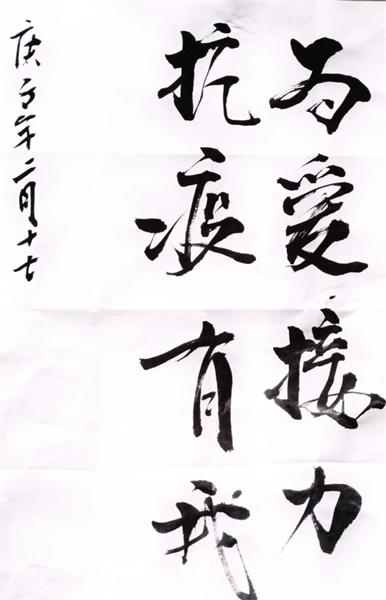 为爱接力
抗疫有我
庚子年二月十七